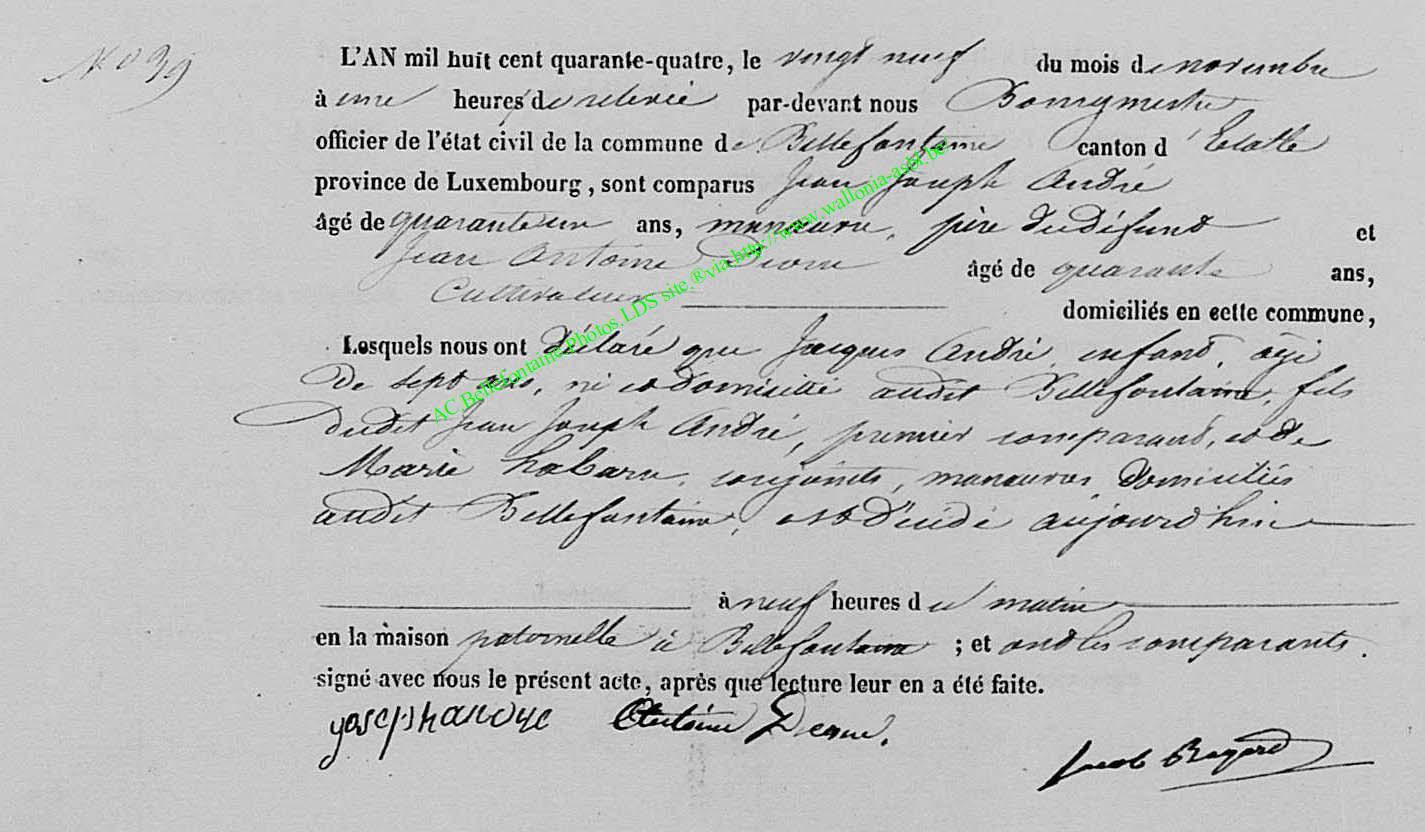 N° 39
L'AN mil huit cent quarante-quatre, le vingt neuf du mois de novembre
à une heures de relevée par-devant nous Bourgmestre
officier de l'état civil de la commune de Bellefontaine canton d'Etalle
province de Luxembourg, sont comparus Jean Joseph André
âgé de quarante un ans, manœuvre, père du défunt et
Jean Antoine âgé de quarante ans,
Cultivateur domiciliés en cette commune,
Lesquels nous ont déclaré que Jacques André, enfant âgé
de sept ans, né et domicilié audit Bellefontaine, fils
dudit Jean Joseph André, premier comparant, et de
Marie conjoints, manœuvres domiciliés
audit Bellefontaine, est décédé aujourd'hui
à neuf heures du matin
en la maison paternelle à Bellefontaine ; et ont les comparants
signé avec nous le présent acte, après que lecture leur en a été faite.
josephandre Antoine
Jacob
AC Bellefontaine Photos LDS site ® via http://www.wallonia-asbl.be